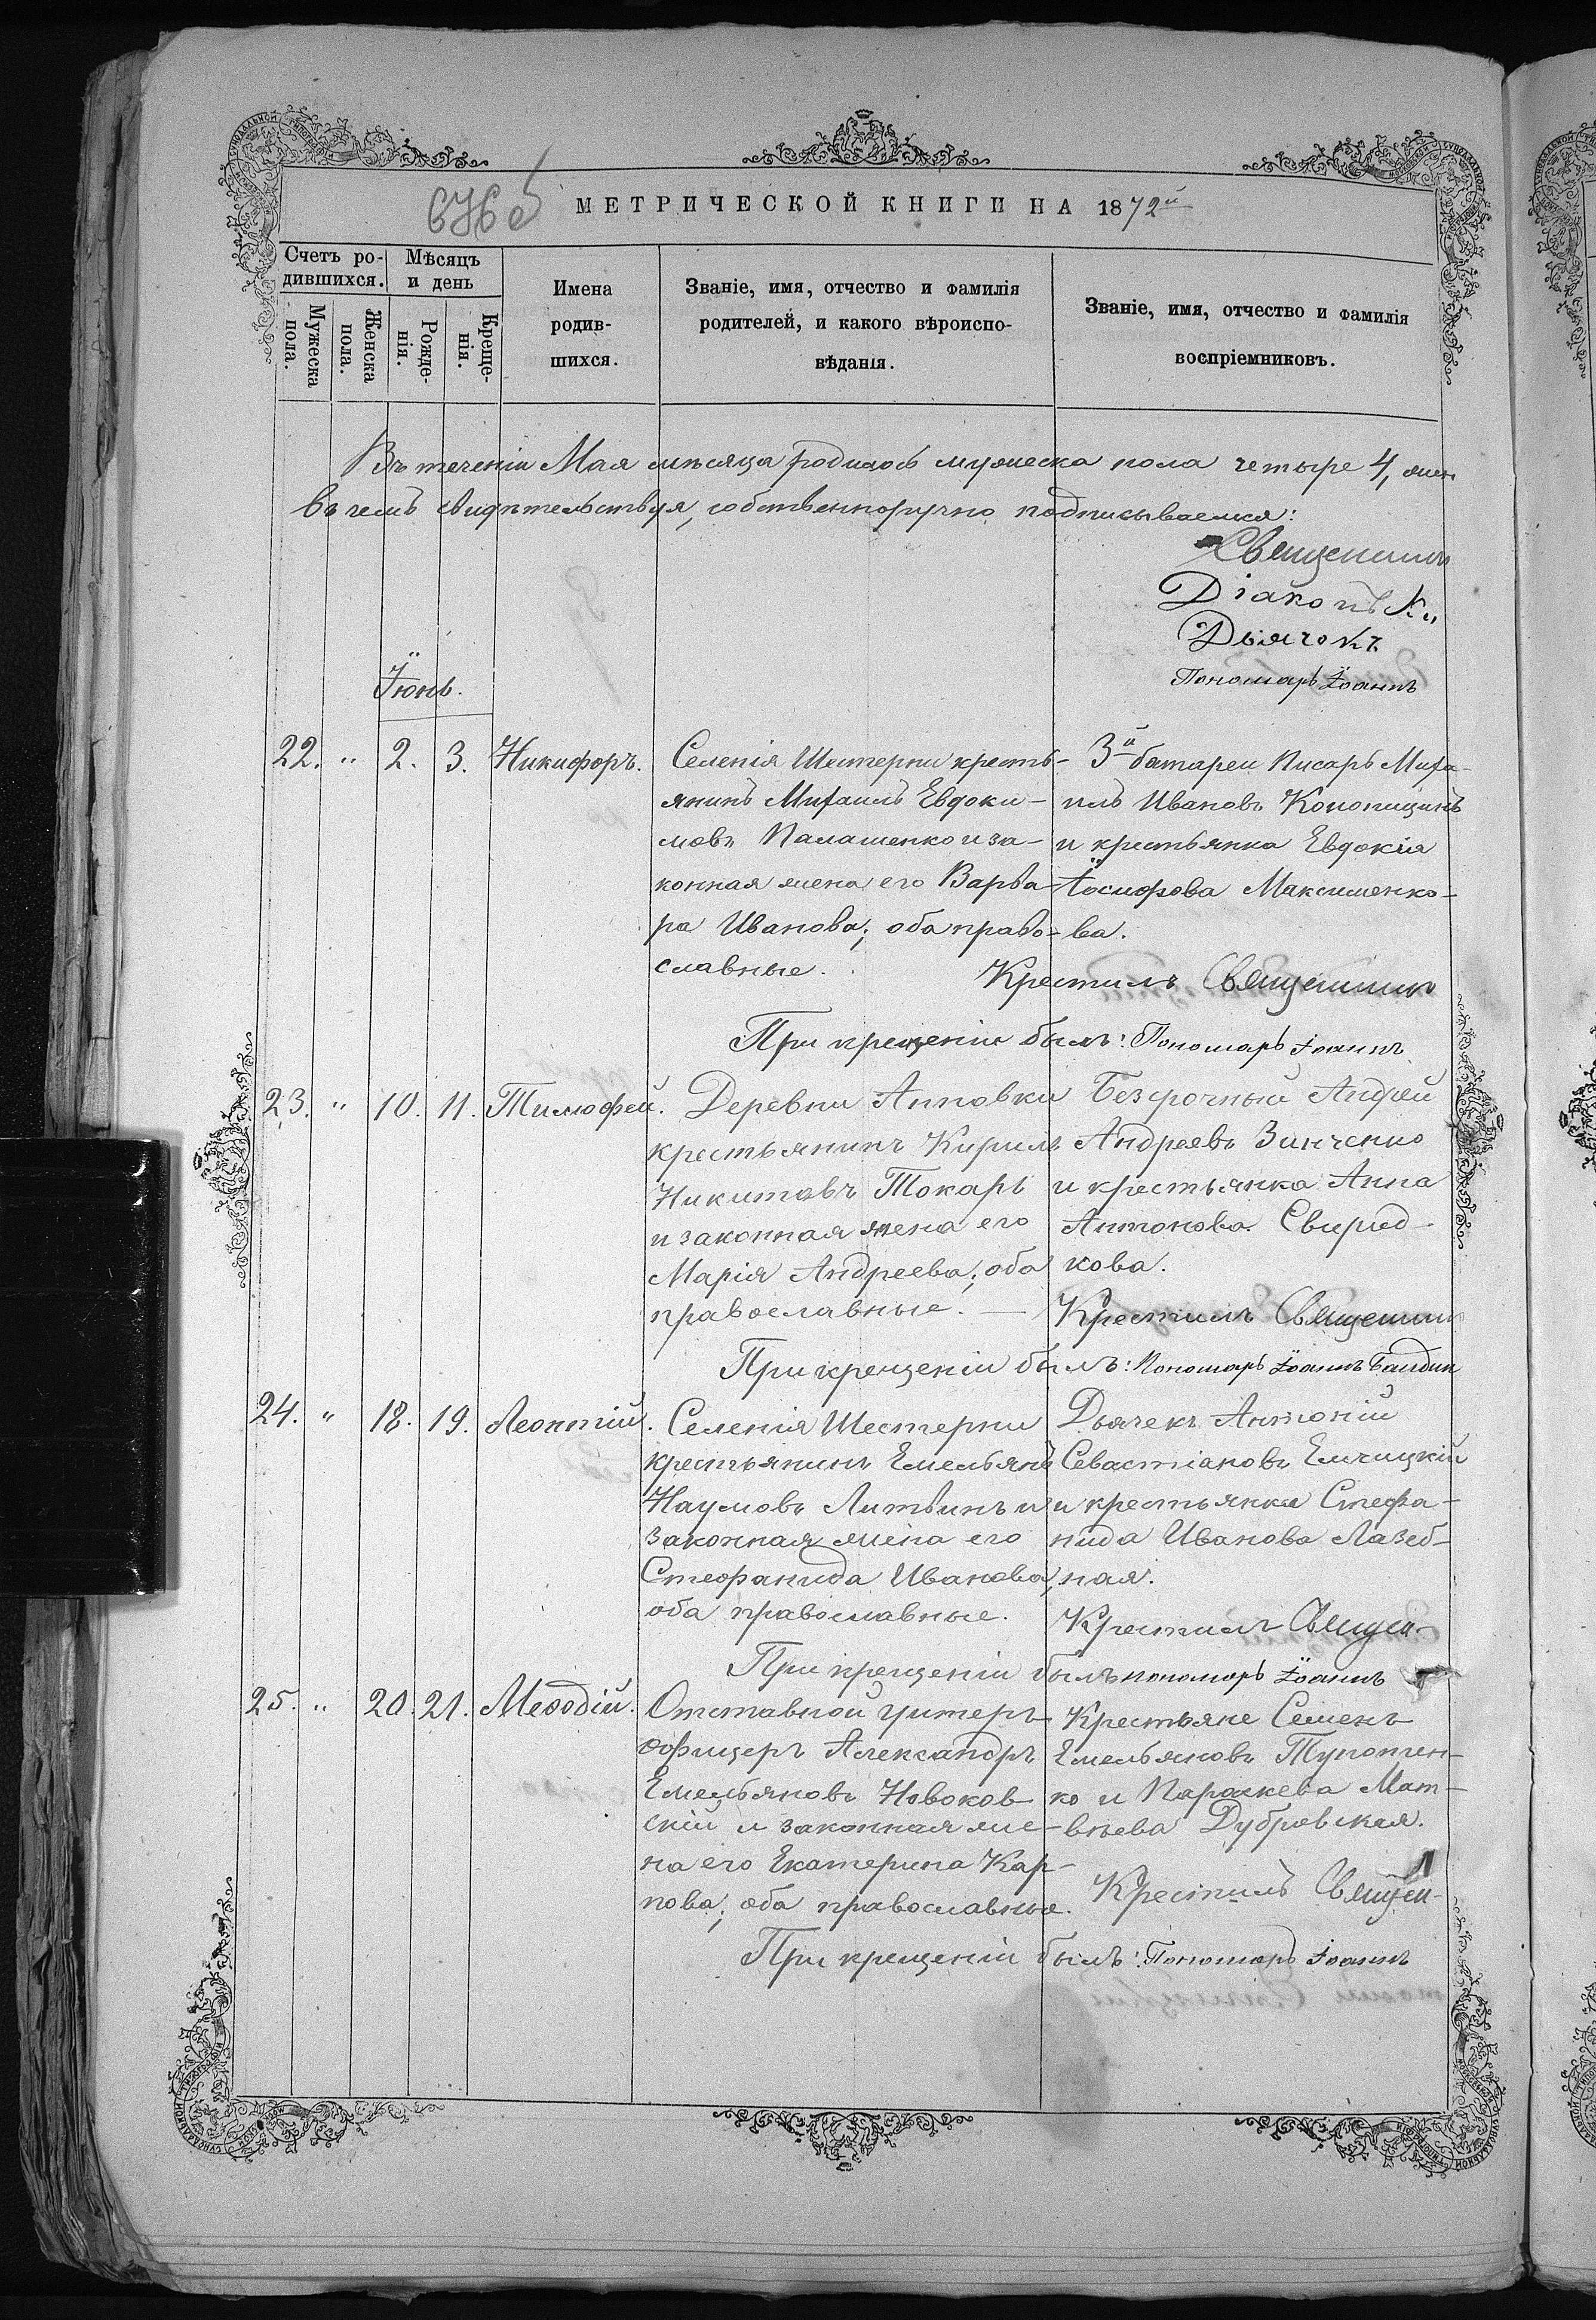 МЕТРИЧЕСКОЙ КНИГИ НА 1872й
Счетъ ро-
дившихся.
Мѣсяцъ
и день
Мужеска
пола.
Женска
пола.
Рожде-
нія.
Креще-
нія.
Имена
родив-
шихся.
Званіе, имя, отчество и фамилія
родителей, и какого вѣроиспо-
вѣданія.
Званіе, имя, отчество и фамилія
воспріемниковъ.
Въ теченіи Мая мѣсяца родилось мужеска пола четыре 4, жен
въ чемъ свидѣтельствуя, собственноручно подписываемся:
Священникъ
Діаконъ
Дьячокъ
Пономарь Іоаннъ
Іюнь.
22. " 2. 3. Никифоръ.
Селенія Шестерни кресть-
янинъ Михаилъ Евдоки-
мовъ Палашенко и за-
конная жена его Варва-
ра Иванова; оба право-
славные.
3й батареи Писарь Миха-
илъ Ивановъ Конопицинъ
и крестьянка Евдокія
Іосифова Максименко-
ва.
Крестилъ Священникъ
При крещеніи былъ: Пономарь Іоаннъ
23. " 10. 11. Тимофей.
Деревни Анновки
крестьянинъ Кирилъ
Никитовъ Токарь
и законная жена его
Марія Андреева; оба
православные. —
Безсрочный Андрей
Андреевъ Зинченко
и крестьянка Анна
Антонова Свирид-
кова.
Крестилъ Священник
При крещеніи былъ: Пономарь Іоаннъ
24. " 18. 19. Леонтій.
Селенія Шестерни
крестьянинъ Емельянъ
Наумовъ Литвинъ и
законная жена его
Стефанида Иванова,
оба православные.
Дьячекъ Антоній
Севастіановъ Елчицкій
и крестьянка Стефа-
нида Иванова Лазеб-
ная.
Крестилъ Священ-
При крещеніи былъ пономарь Іоаннъ
25. " 20. 21. Меѳодій.
Отставной унтеръ
офицеръ Александръ
Емельяновъ Новоков-
скій и законная же-
на его Екатерина Кар-
пова; оба православные.
Крестьяне Семенъ
Емельяновъ Тупотен-
ко и Параскева Мат-
вѣева Дубровская.
Крестилъ Священ-
При крещеніи былъ: Пономарь Іоаннъ